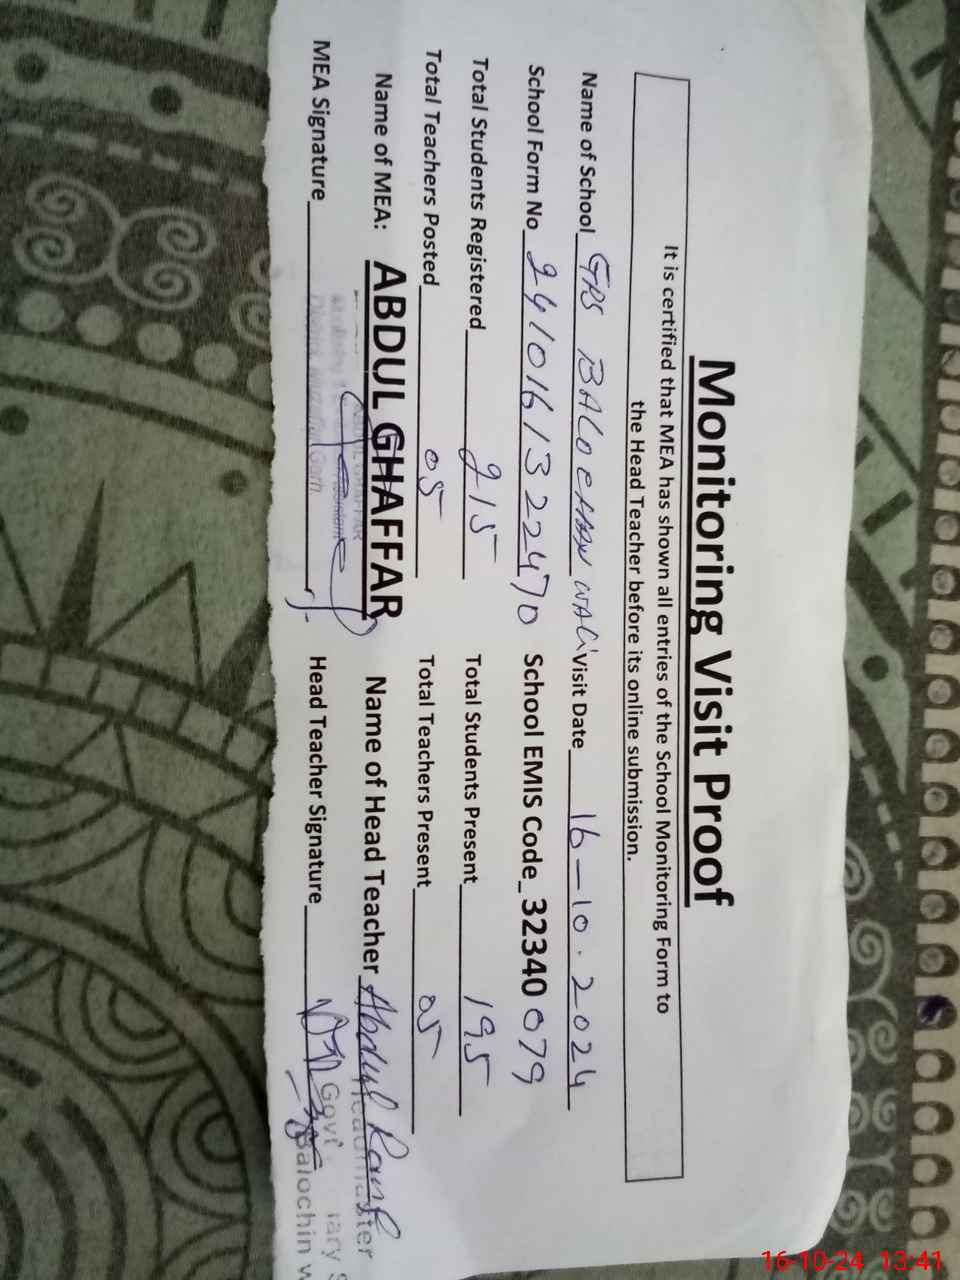 Monitoring Visit Proof
It is certified that MEA has shown all entries of the School Monitoring Form to
the Head Teacher before its online submission.
Name of School GPS BALOCHAN WALI Visit Date 16-10.2024
School Form No 2410161322470 School EMIS Code_32340079
Total Students Registered 215 Total Students Present 195
Total Teachers Posted 05 Total Teachers Present 05
Name of MEA: ABDUL GHAFFAR Name of Head Teacher Abdul
MEA Signature Head Teacher Signature
ABDUL GHAFFAR
Headmaster
Govt.
Balochin W
16-10-24 13:41